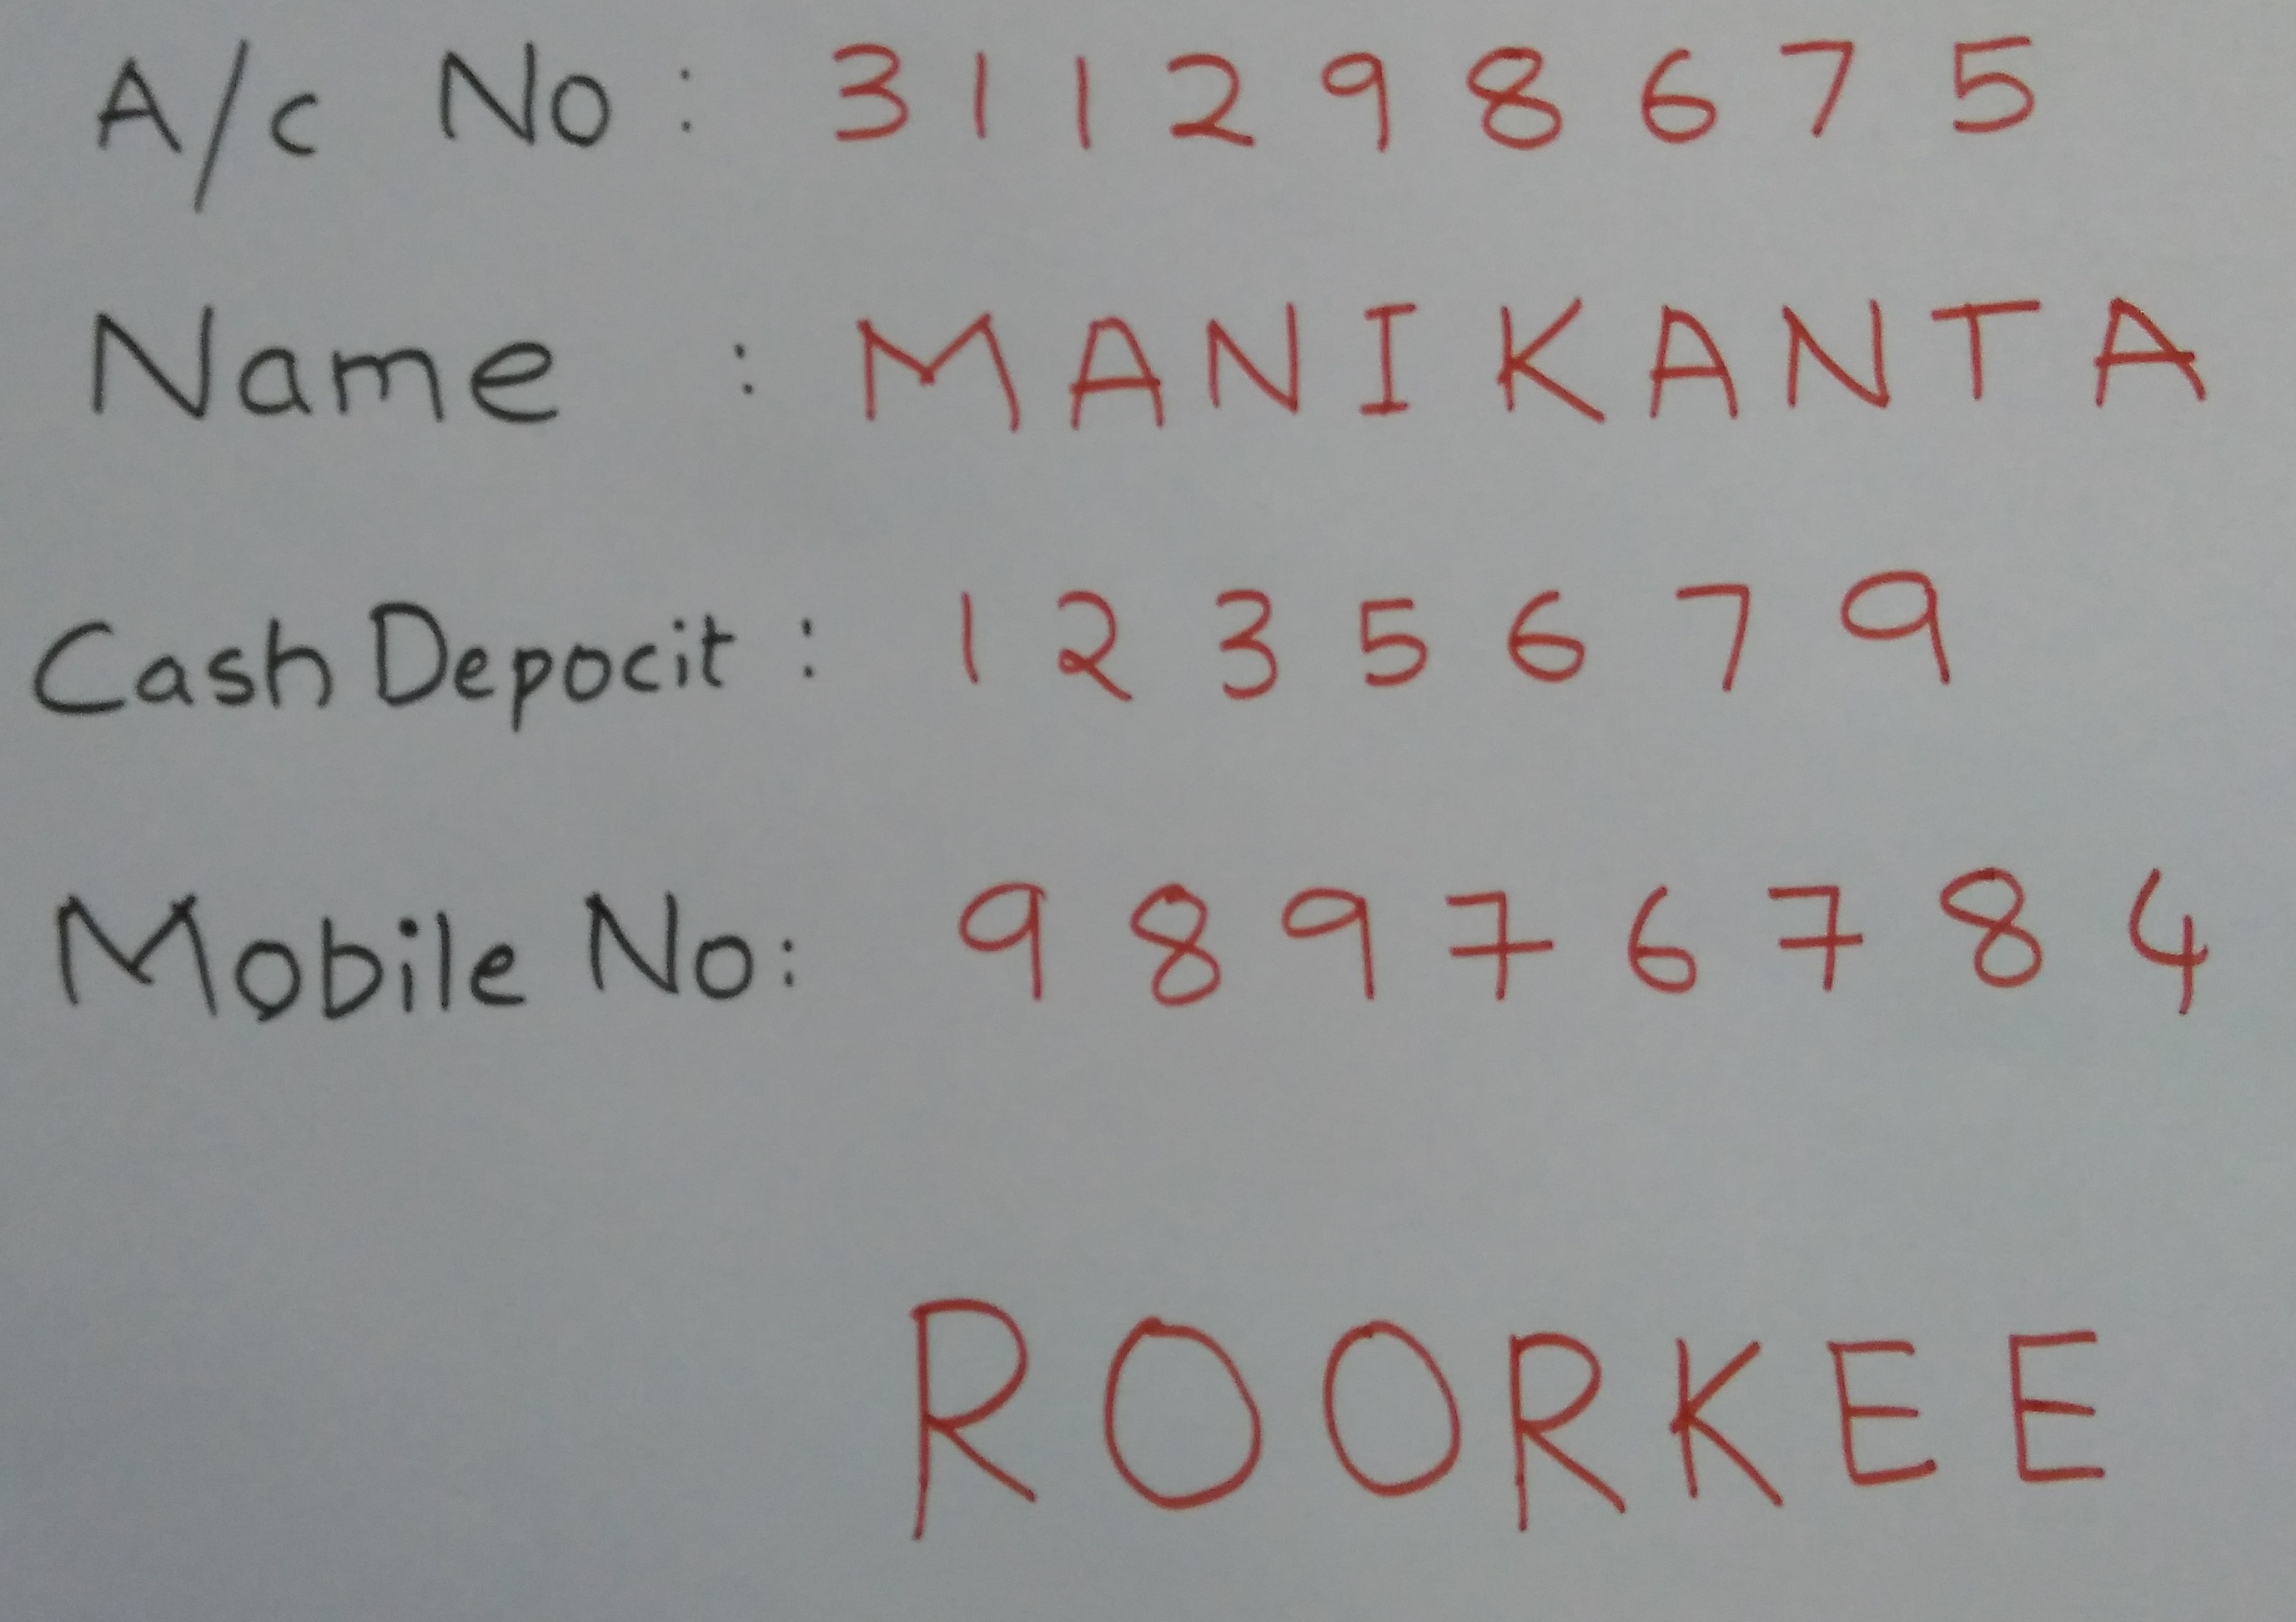 A/c No : 311298675
Name : MANIKANTA
Cash Depocit : 1235679
Mobile No: 98976784
ROORKEE